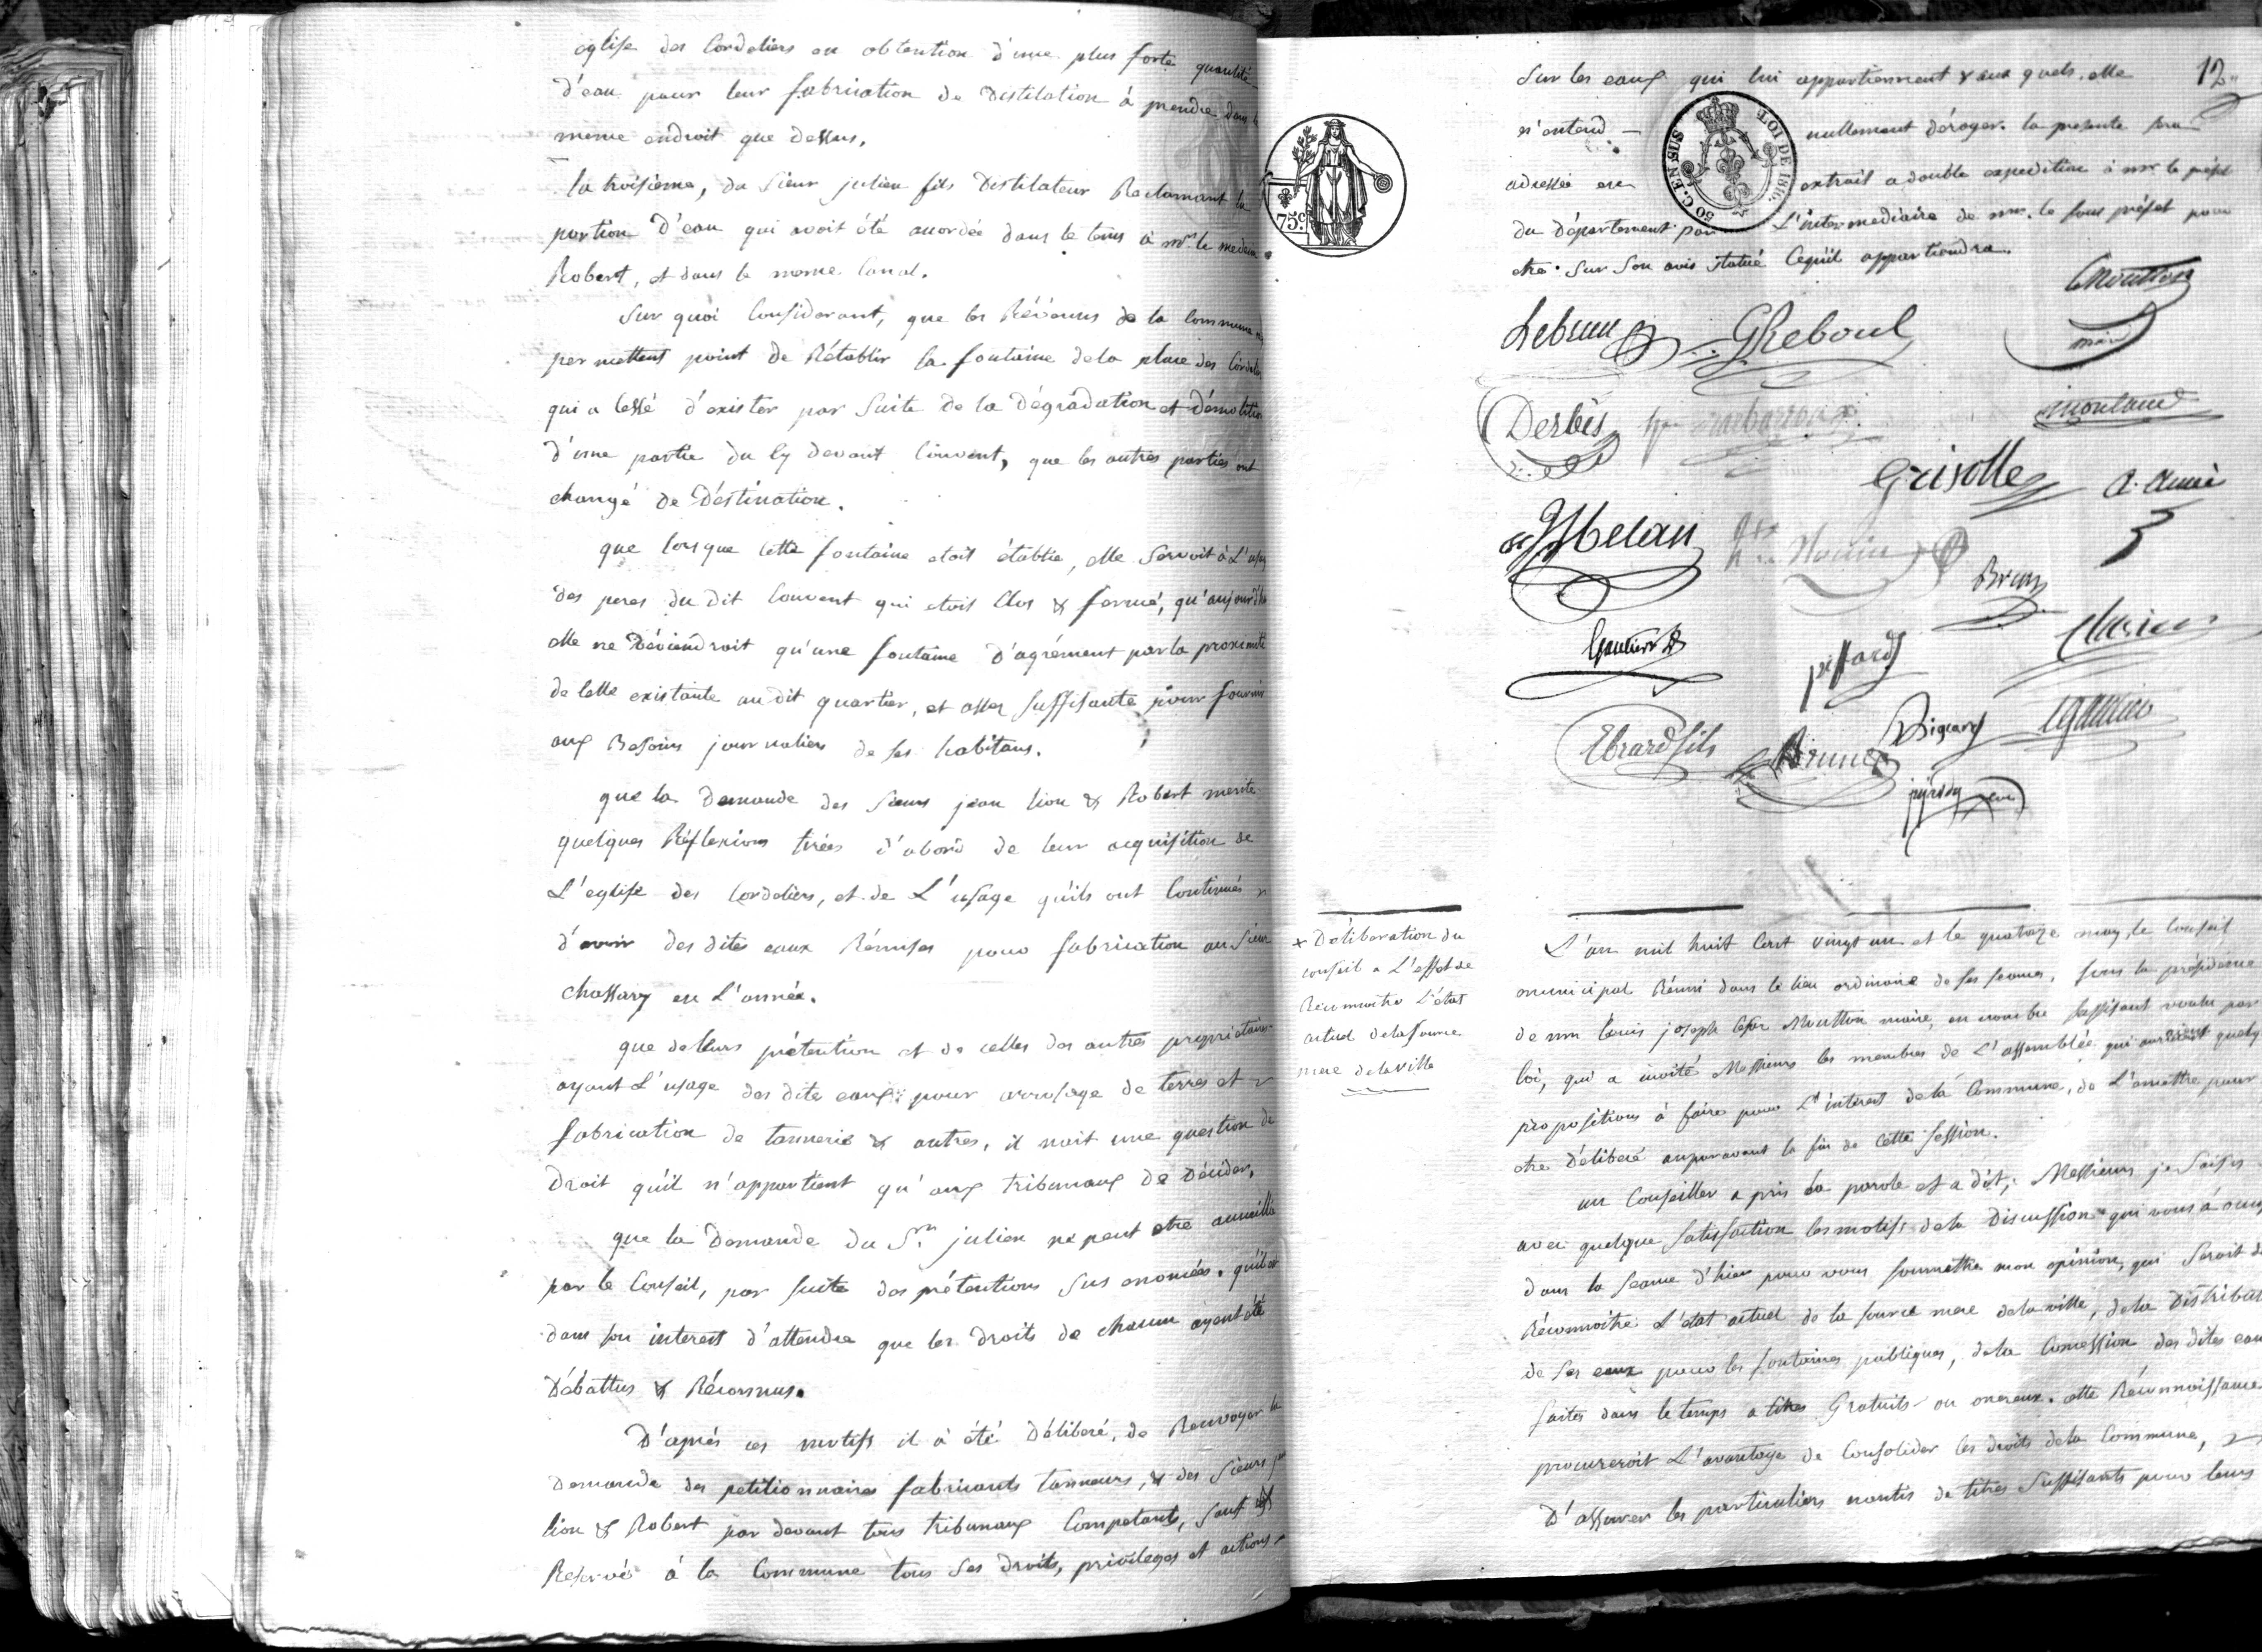 eglise des Cordeliers en obtention d'une plus forte quantité
d'eau pour leur fabrication de Distilation à prendre dans le
meme endroit que dessus.
la troisieme, du Sieur julien fils Distilateur Reclamant la
portion d'eau qui avoit été accordée dans le tems à mr. le medecin
Robert, et dans le meme Canal.
Sur quoi Considerant, que les Révénus de la Commune ne
permettent point de Rétablir la fontaine de la place des Cordeliers
qui a Cessé d'exister par Suite de la Dégradation et Démolition
d'une partie du Cy devant Couvent, que les autres parties ont
changé de Déstination.
que lorsque Cette fontaine etoit établie, elle Servoit à L'usage
des peres du dit Couvent qui etoit Clos & fermé, qu'aujourd'hui
elle ne Déviendroit qu'une fontaine D'agrément par la proximité
de Celle existante au dit quartier, et assez Suffisante pour fournir
aux Besoins journaliers de ses habitans.
que la Demande des Sieurs jean lion & Robert merite
quelques Réflexions tirées d'abord de leur acquisition de
L'eglise des Cordeliers, et de L'usage qu'ils ont Continués
d'avoir des dites eaux Rémises pour fabrication au Sieur
Chassary en L'année.
que de leurs prétention et de celles des autres proprietaires
ayant L'usage des dite eaux pour arrosage de terres et
fabrication de tannerie & autres, il nait une question de
Droit qu'il n'appartient qu'aux tribunaux de Décider,
que la Demande du Sr. julien ne peut etre accueillie
par le Conseil, par Suite des prétentions Sus enoncées. qu'il est
dans son interest d'attendre que les Droits de chacun ayent été
Débattus & Réconnus.
D'aprés ces motifs il a été Déliberé, de Renvoyer la
Demande des petitionnaires fabricants tanneurs, & des Sieurs jean
lion & Robert par devant tous tribunaux Competants, Sauf est
Reservé à la Commune tous Ses Droits, privileges et actions
12
Sur les eaux qui lui appartiennent & aux quels elle
n'entend nullement déroger. la presente sera
adressée en extrait a double expedition à mr. le préfet
du Département par L'intermediaire de mr. le Sous préfet pour
etre Sur Son avis Statué Cequ'il appartiendra.
75c.
50 C. EN SUS
LOI DE 1816.
CMoutton
maire
Lebrun
GReboul
Derbès
Barbaroux
montaud
Grisolle
A. Aumé
Melan
Brun
Gautier
piffard
Ebrard fils
Brunet
Sigaud
+ Déliberation du
conseil a L'effet de
Réconnoitre L'état
actuel de la Source
mere de la ville
L'an mil huit Cent vingt un et le quatorze may, le Conseil
municipal Réuni dans le lieu ordinaire de ses seances, sous la présidence
de mr Louis joseph Cesar Moutton maire, en nombre Suffisant voulu par
loi, qui a invité Messieurs les membres de L'assemblée qui auroient quelq
propositions à faire pour L'interest de la Commune, de L'emettre pour
etre Déliberé auparavant la fin de Cette Session.
un Conseiller a pris la parole et a dit, Messieurs je Saisis
avec quelque Satisfaction les motifs de la Discussion qui vous à occupé
dans la Seance d'hier pour vous soumettre mon opinion, qui Seroit de
Réconnoitre L'état actuel de la source mere de la ville, de la Distribution
de Ses eaux pour les fontaines publiques, de la Concession des dites eaux
faites dans le temps a titres Gratuits ou onereux. Cette Réconnoissance
procureroit L'avantage de Consolider les droits de la Commune,
D'assurer les particuliers nantis de titres Suffisants pour leurs